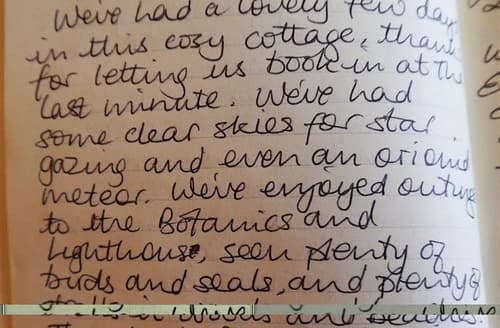 We've had a lovely few days
in this cosy cottage, thanks
for letting us book in at the
last minute. We've had
some clear skies for star
gazing and even an orionid
meteor. We've enjoyed outings
to the Botanics and
Lighthouse, seen plenty of
birds and seals, and plenty of
and beaches.